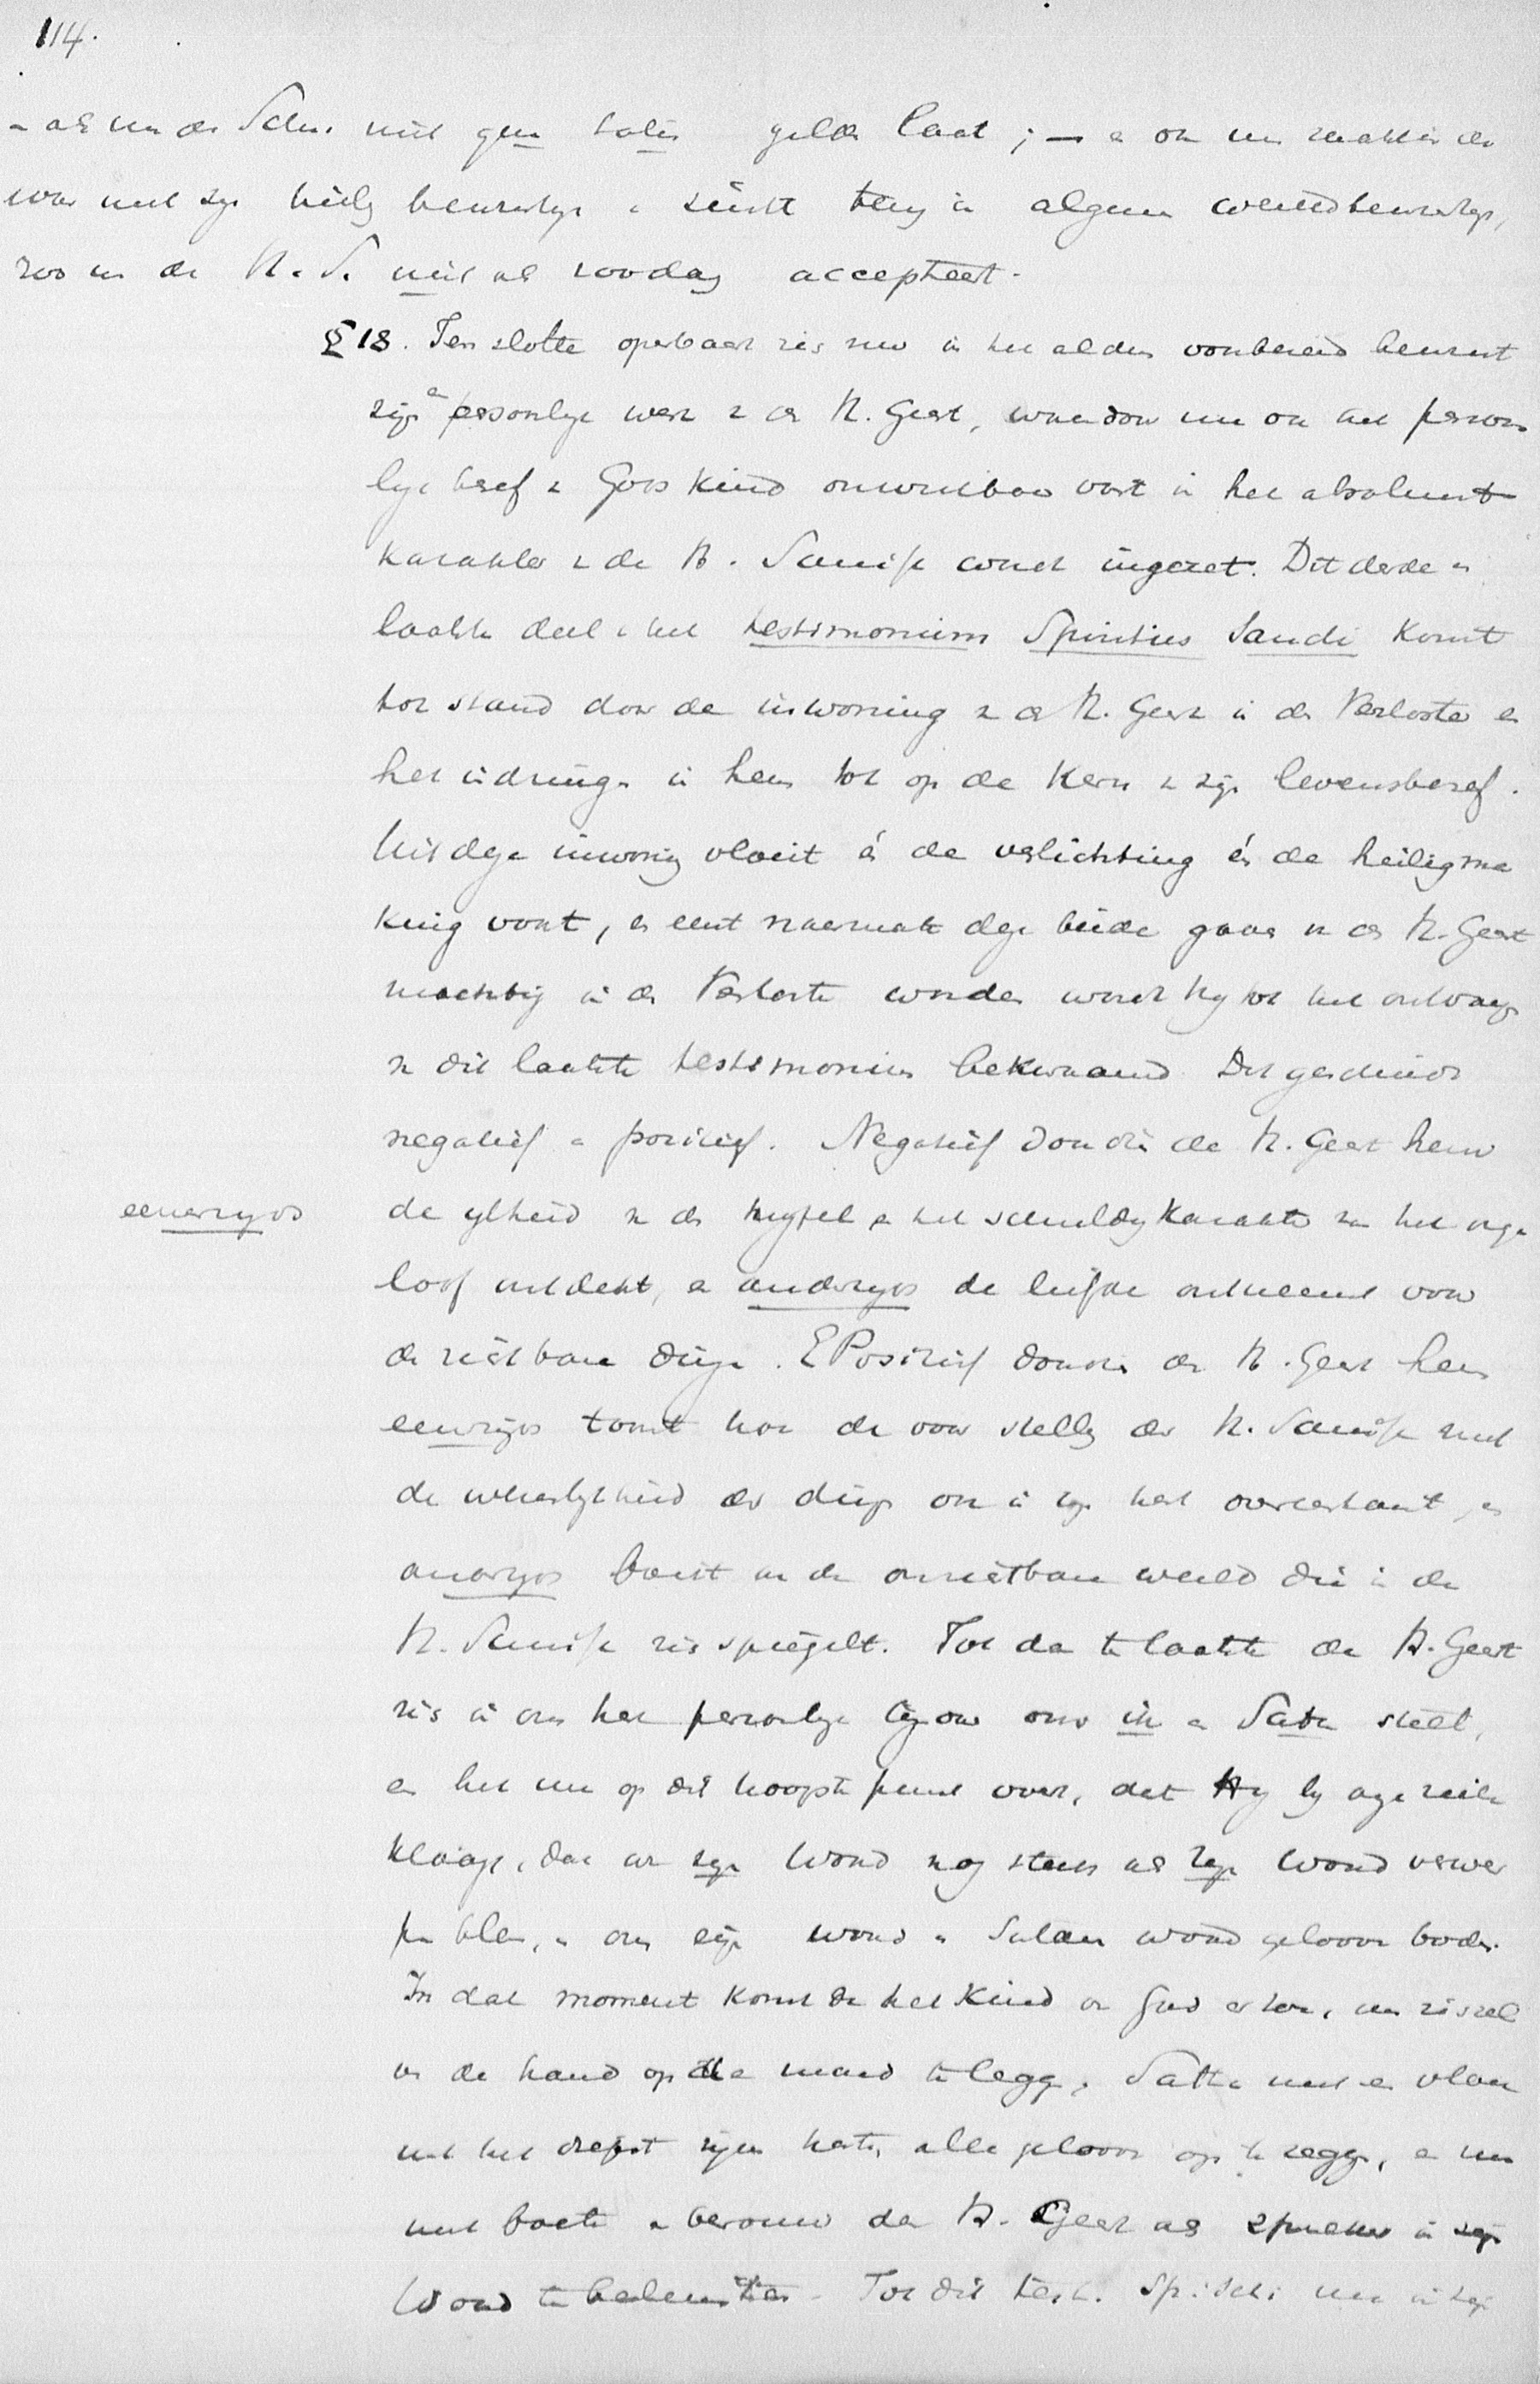 114.
als men de Schr. niet geen laten gelden laat ; — en
met zyn heilig in algemeen
zoo de H. S. niet als zoodanig accepteert.
§ 18. Ten slotte openbaart zich nu in het aldus voorbereid bewust
zijn persoonlyk werk v de H. Geest, waardoor nu ook het persoon
lyk besef v Gods kind onwrikbaar vast in het absoluut
karakter v de H. Schrift wordt ingezet. Dit derde en
laatste deel v het testimonium Spiritus Sancti komt
tot stand door de inwoning v de H. Geest in de Verloste en
het indringen in hem tot op de kern v zijn levensbesef.
Uit deze inwoning vloeit én de verlichting én de heiligma
king voort, en eerst naarmate deze beide gaven v de H. Geest
machtig in de Verloste worden wordt hy tot het ontvangen
v dit laatste testimonium bekwaamd. Dit geschiedt
negatief en positief. Negatief doordien de H. Geest hem
eenerzyds
de ijlheid v de twyfel en het schuldig karakter van het onge
loof ontdekt, en anderzyds de liefde ontneemt voor
de zichtbare dingen. Positief doordien de H. Geest hem
eenerzyds toont hoe de voorstelling der H. Schrift met
de werkelykheid der dingen ook in zyn hart overeenkomt, en
anderzyds boeit aan de onzichtbare wereld die in de
H. Schrift zich spiegelt. Tot dan ten laatste de H. Geest
zich in ons hart persoonlyk tegenover ons ik en Satan stelt,
en het nu op dit hoogste punt voert, dat Hy by onze ziele
klage, dat we zyn Woord nog steeds als zyn Woord verwer
pen bleven, en ons eigen woord en Satans woord geloove boden.
In dat moment komt dan het kind v God er toe, om zichzel
ven de hand op den mond te leggen, Satan met en vloek
uit het diepst zijner harte, alle geloove op te zeggen, en nu
met boete en berouw de H. Geest als spreker in zyn
Woord te Tot dit test. Sp. Scti